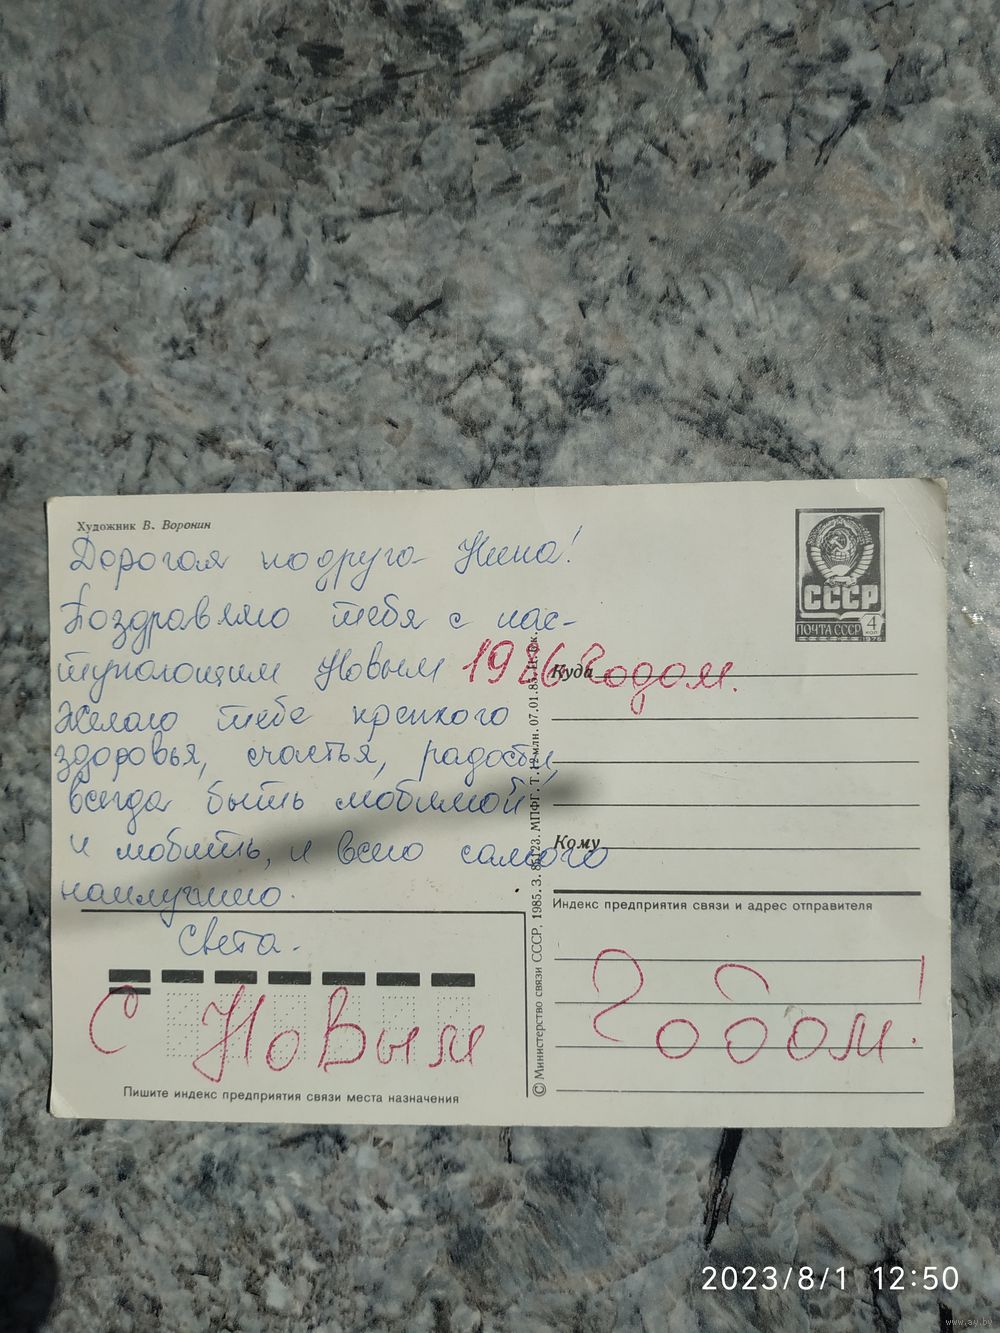 Художник В. Воронин
Дорогая подруга Нина!
Поздравляю тебя с нас-
тупающим Новым 1986 годом.
Желаю тебе крепкого
здоровья, счастья, радости,
всегда быть любимой
и любить, и всего самого
наилучшего.
Света.
С Новым Годом!
Пишите индекс предприятия связи места назначения
© Министерство связи СССР, 1985. З. 85123. МПФГ. Т. 12 млн. 07.01.85.
СССР
ПОЧТА СССР 4 коп
1976
Куда
Кому
Индекс предприятия связи и адрес отправителя
2023/8/1 12:50
www.ay.by